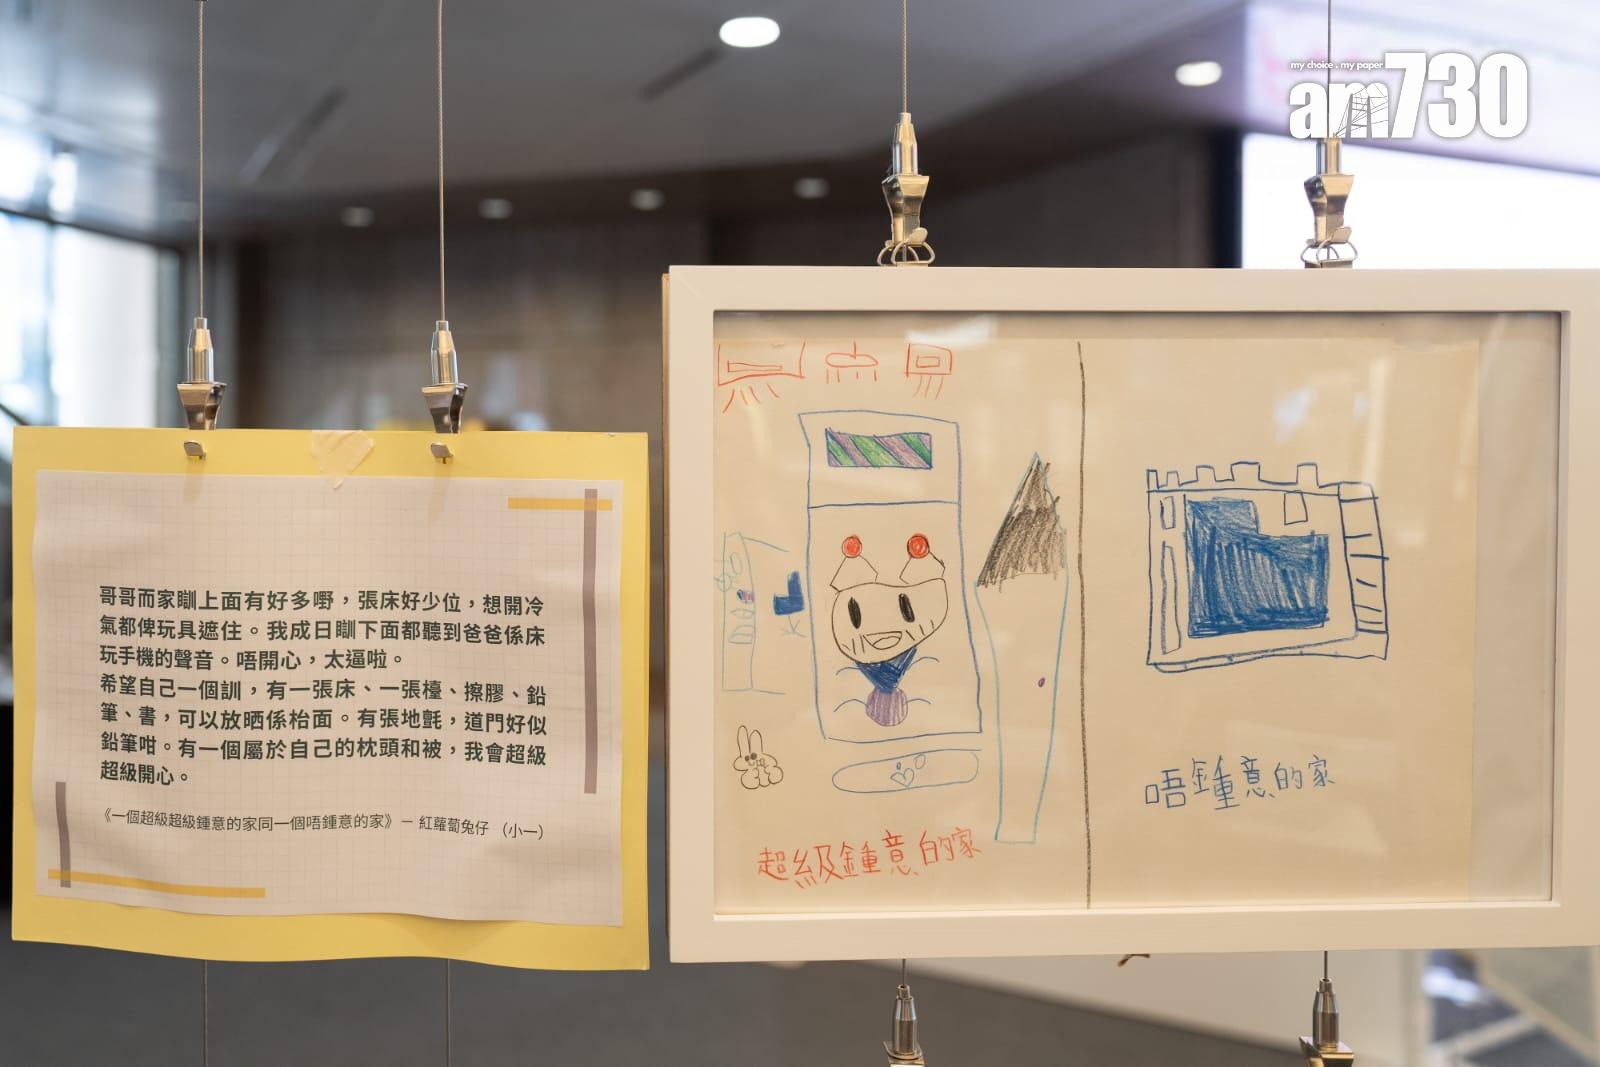 my choice . my paper
am730
哥哥而家瞓上面有好多嘢，張床好少位，想開冷
氣都俾玩具遮住。我成日瞓下面都聽到爸爸係床
玩手機的聲音。唔開心，太逼啦。
希望自己一個訓，有一張床、一張檯、擦膠、鉛
筆、書，可以放晒係枱面。有張地氈，道門好似
鉛筆咁。有一個屬於自己的枕頭和被，我會超級
超級開心。
《一個超級超級鍾意的家同一個唔鍾意的家》－ 紅蘿蔔兔仔 （小一）
超級鍾意的家
唔鍾意的家